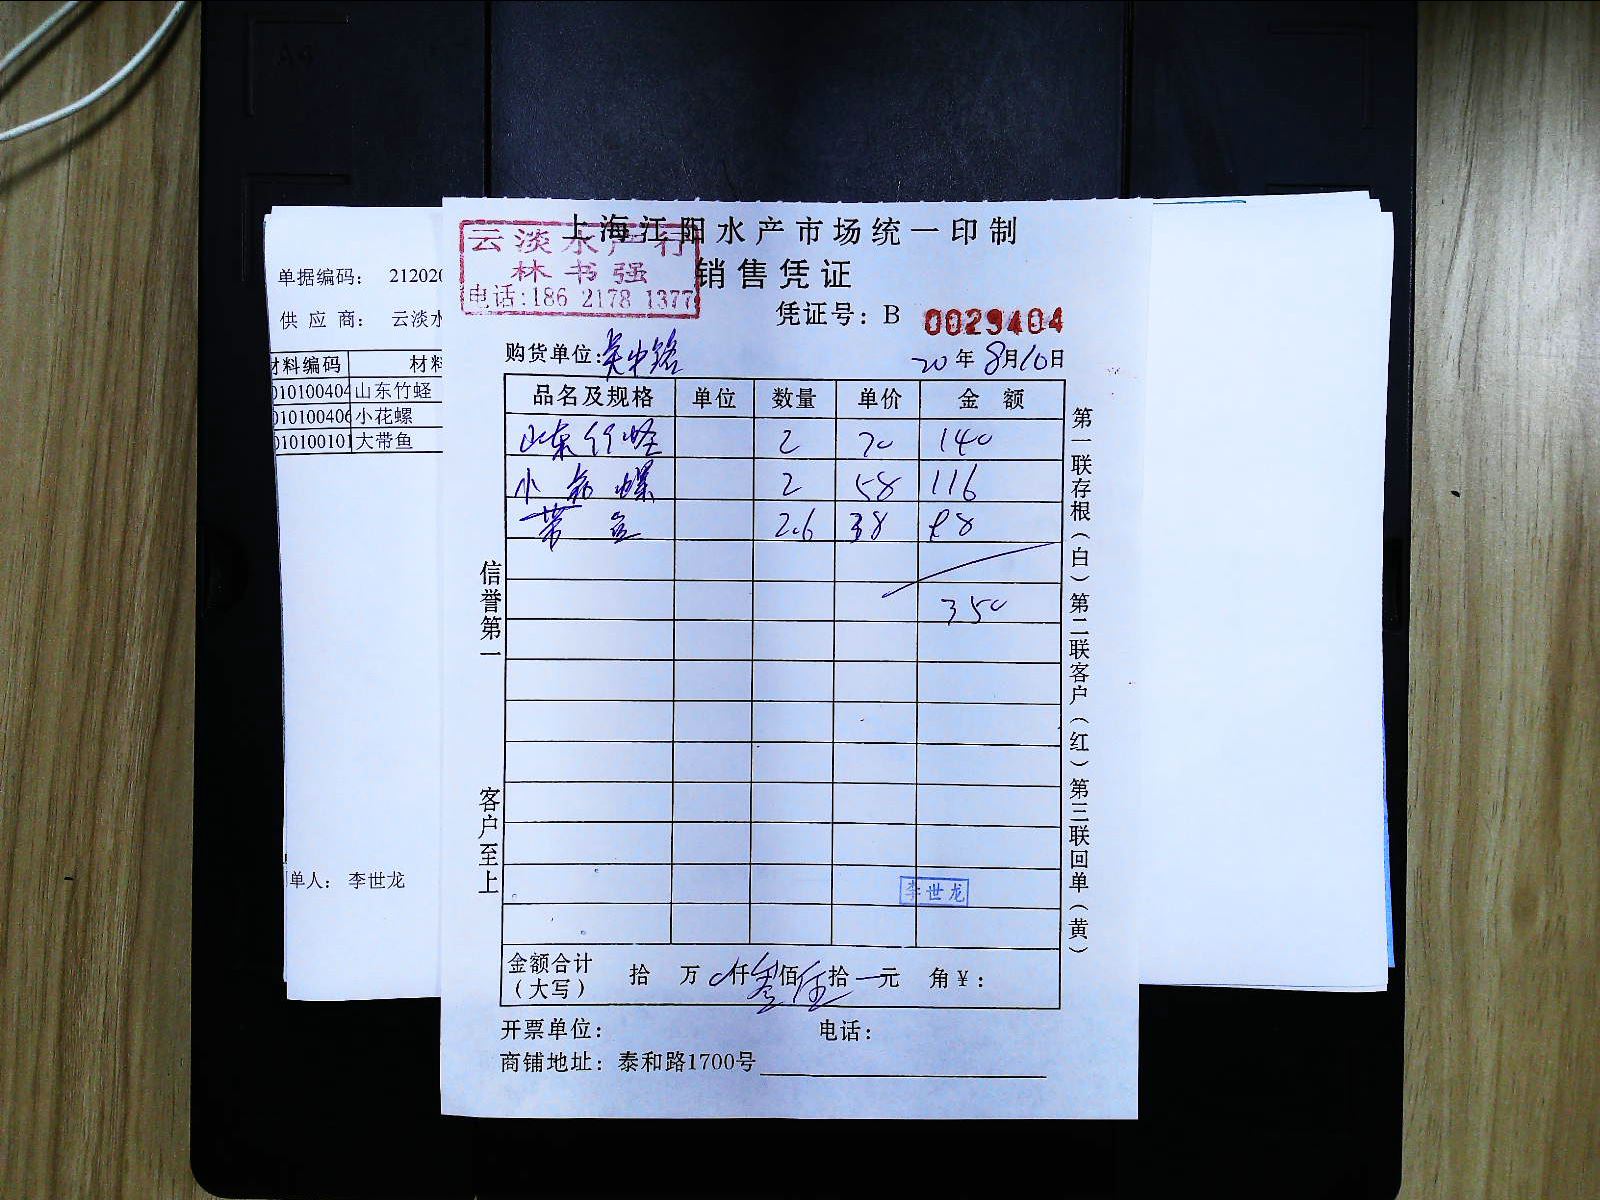 上海江阳水产市场统一印制
云淡水产行
林书强
电话:186 2178 1377
销售凭证
凭证号: B 0029404
购货单位: 吴中路 20年8月10日
品名及规格 单位 数量 单价 金额
山东竹蛏 2 70 140
小花螺 2 58 116
带鱼 2.6 38 98
350
信誉第一
客户至上
第一联存根(白)第二联客户(红)第三联回单(黄)
李世龙
金额合计(大写) 拾 万 0仟叁佰伍拾 元 角 ¥:
开票单位: 电话:
商铺地址: 泰和路1700号
单据编码: 212020
供应商: 云淡水
材料编码 材料
010100404 山东竹蛏
010100406 小花螺
010100101 大带鱼
单人: 李世龙
A4